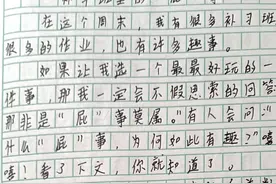 在这个周末，我有很多补习班
很多的作业，也有许多趣事。
如果让我选一个最最好玩的一
件事，那我一定会不假思索的回答
那非是“屁”事莫属。“有人会问：
什么“屁”事，为何如此有趣？”嘻
嘻！看了下文，你就知道了。